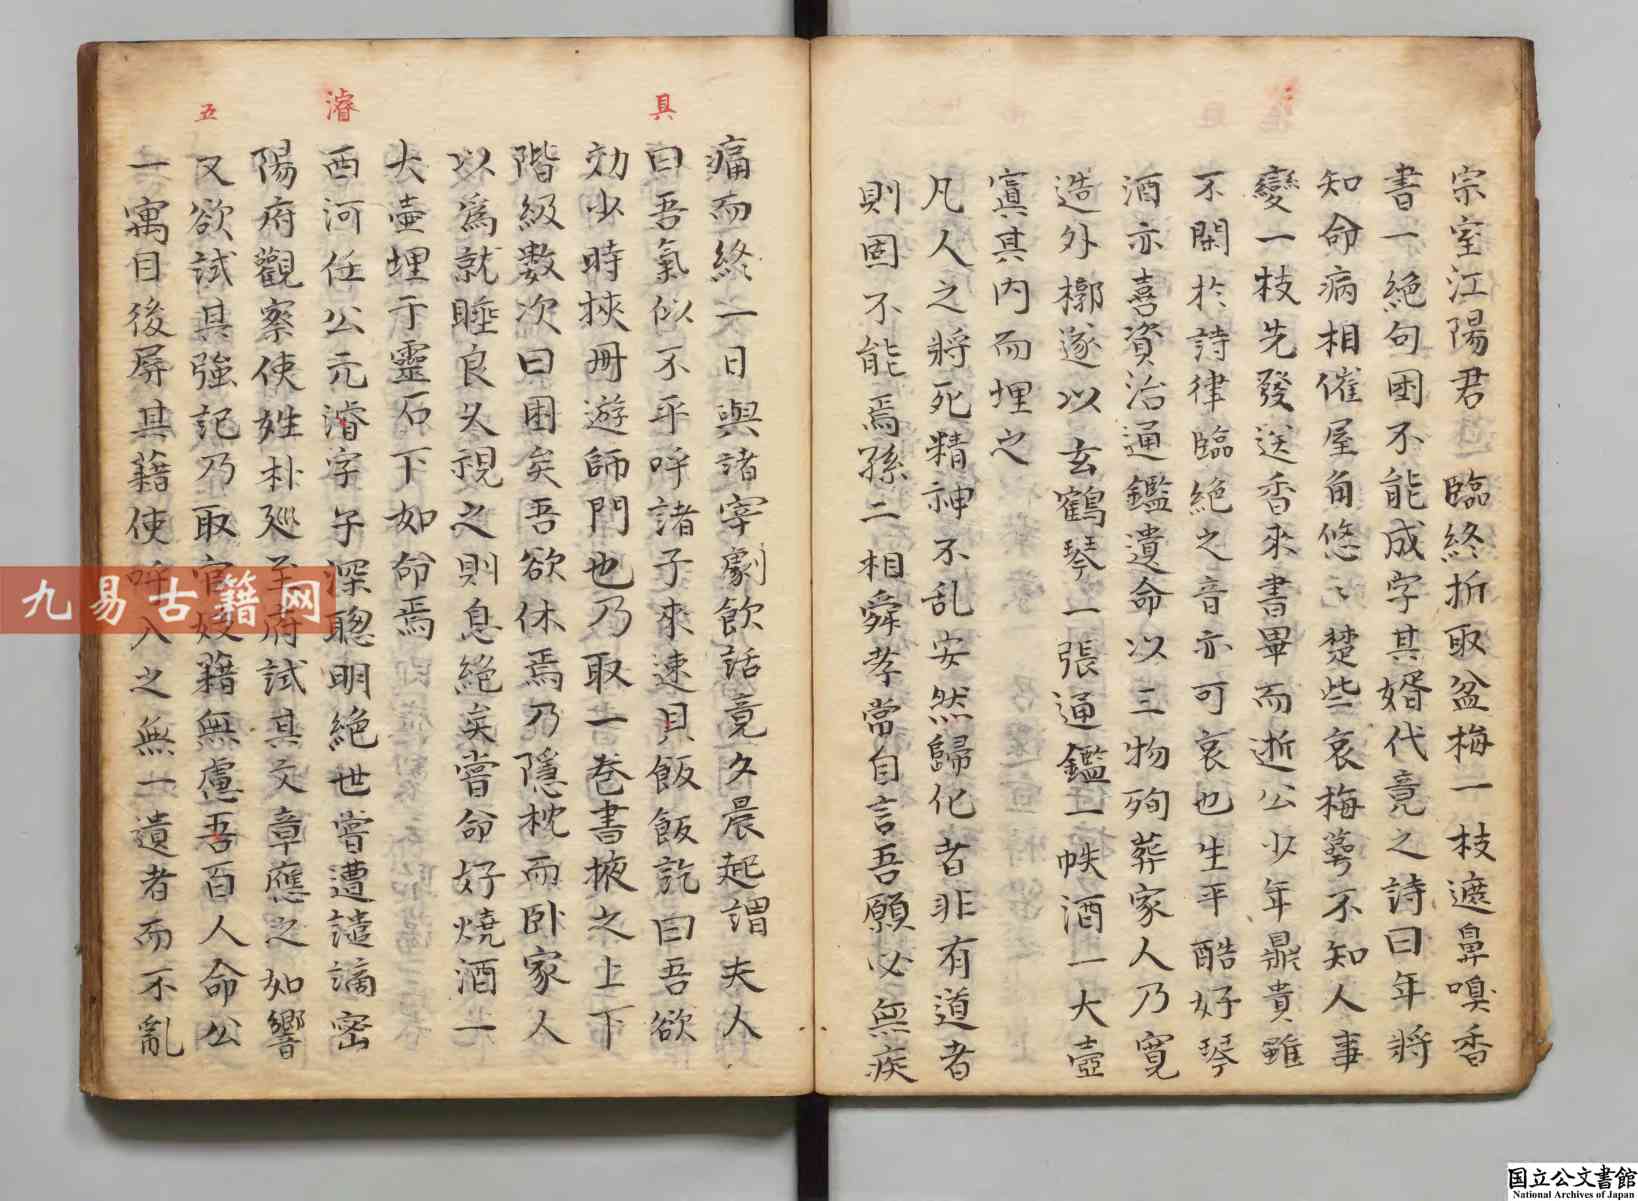 宗室江陽君迢臨終折取盆梅一枝遮鼻嗅香
書一絶句困不能成字其婿代竟之詩曰年將
知命病相催屋角悠〻楚些哀梅蕚不知人事
變一枝先發送香來書畢而逝公少年鼎貴雖
不閑於詩律臨絶之音亦可哀也生平酷好琴
酒亦喜資治通鑑遺命以三物殉葬家人乃寛
造外槨遂以玄鶴琴一張通鑑一帙酒一大壺
寘其内而埋之
凡人之將死精神不乱安然歸化者非有道者
則固不能焉孫二相舜孝常自言吾願必無疾
痛而終一日與諸宰劇飲話竟夕晨起謂夫人
曰吾氣似不平呼諸子來速具飯飯訖曰吾欲
効少時挾冊遊師門也乃取一卷書掖之上下
階級數次曰困矣吾欲休焉乃隱枕而卧家人
以爲就睡良久視之則息絶矣嘗命好燒酒一
大壷埋于靈石下如命焉
西河任公元濬字子深聰明絶世嘗遭譴謫密
陽府觀察使姓朴廵至府試其文章應之如響
又欲試其強記乃取官妓籍無慮五百人命公
一寓目後屏其籍使呼入之無一遺者而不亂
具
濬
五
九易古籍网
国立公文書館
National Archives of Japan